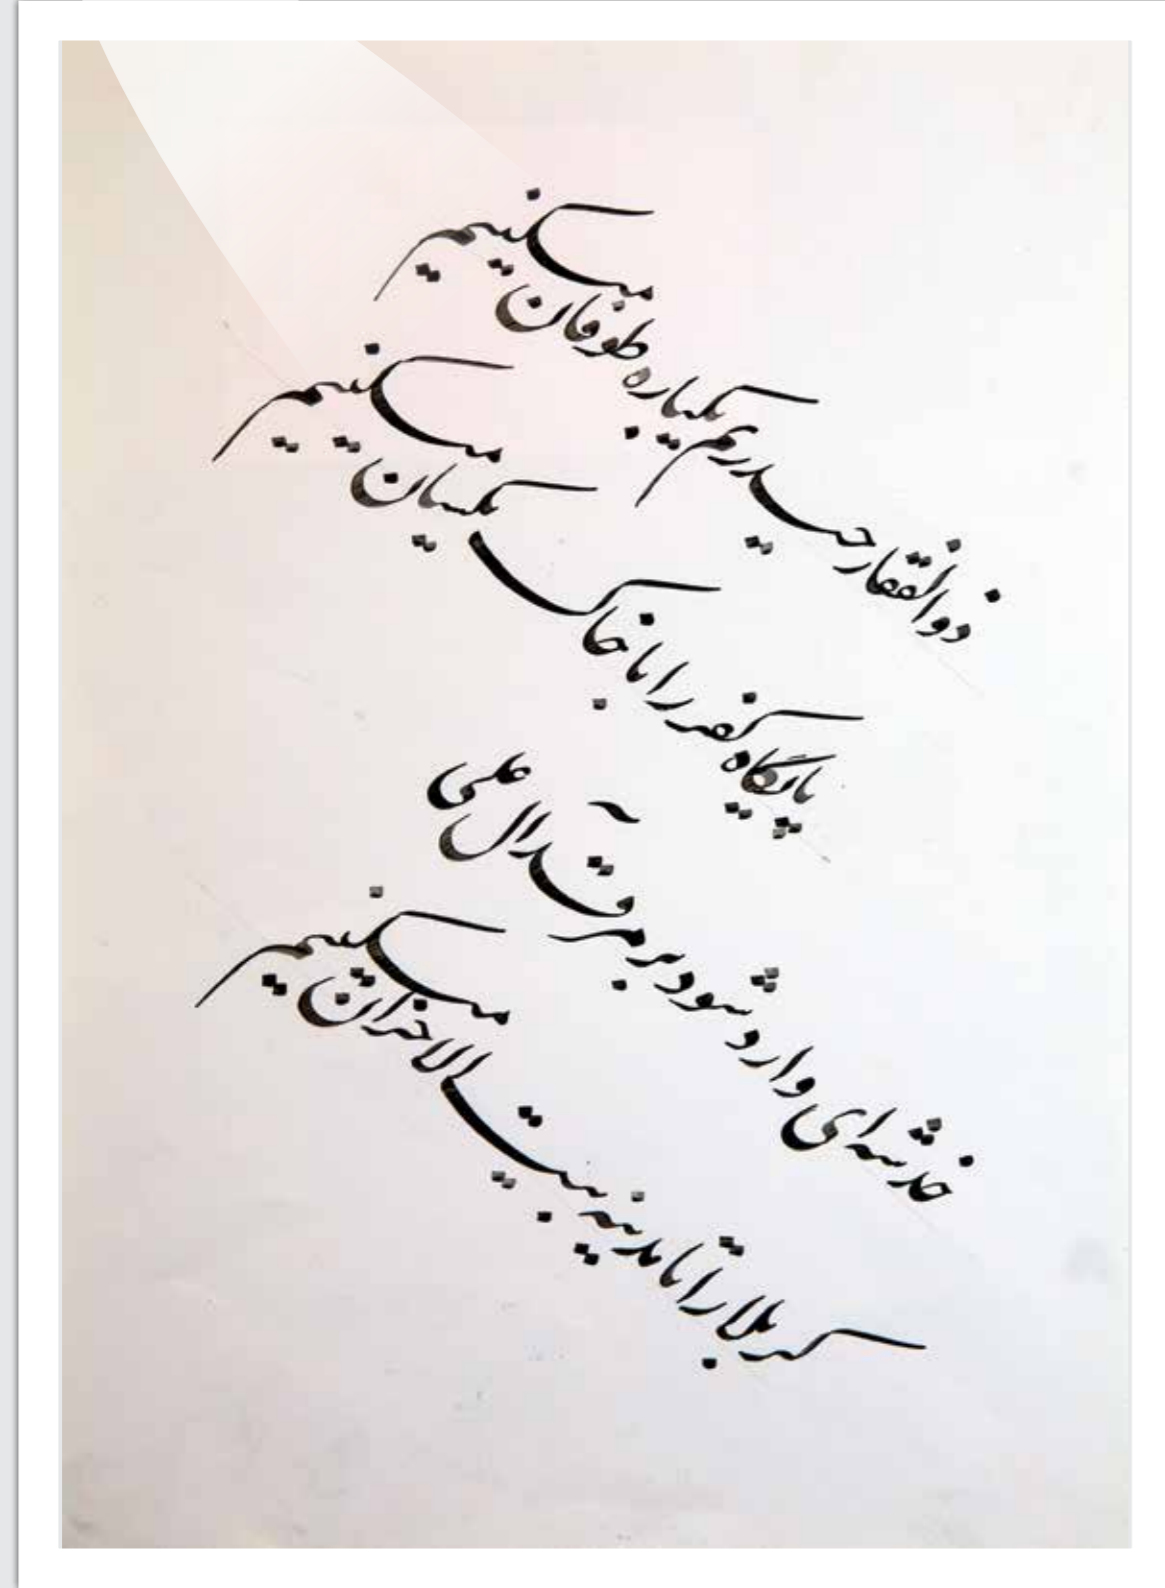 ذوالفقار حیدریم یکباره طوفان میکنیم
پایگاه کفر را با خاک یکسان میکنیم
خدشه ای وارد شود بر مرقد آل علی
کربلا را تا مدینه بیت الاحزان میکنیم